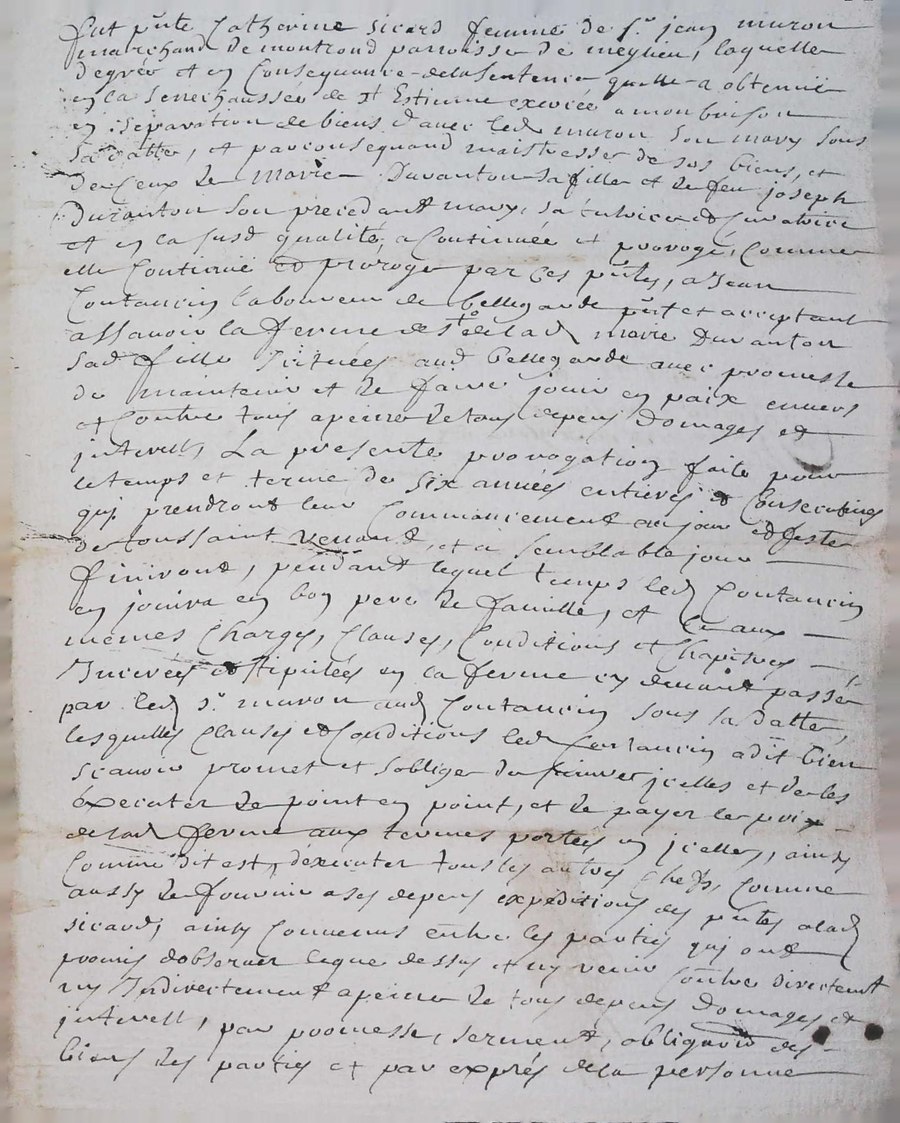 fut pnte Catherine sicard femme de Sr jean muron
marchand de montrond parroisse de meylieu, laquelle
degrée et en Consequance de la Sentence quelle a obtenüe
en la Senechaussée de St Estienne exercée a monbrison
en separation de biens d'avec led muron son mary sous
sa datte, et parconsequand maistresse de ses biens, et
de Ceux de marie Duranton sa fille et de feu joseph
duranton son precedant mary, sa tutrice et Curatrice
et en sa susd qualité, a Continuée et prorogé, Comme
elle Continüe et proroge par ces pntes, a Jean
Coutancin laboureur de bellegarde pnt et acceptant
assavoir la ferme de de lad marie Duranton
sad fille scituées aud bellegarde avec promesse
de maintenir et de faire jouir en paix envers
et Contre tous a peine de tous depens domages et
interest, La presente prorogation faite pour
le temps et terme de six années entieres et Consecutives
qui prendront leur Commancement au jour et feste
de toussaint venant, et a semblable jour
finiront, pendant lequel temps led Coutancin
en jouira en bon pere de famille, et aux
mêmes Charges, Clauses, Conditions et Chapitres
Inserées et stipulées en la ferme cy devant passée
par led Sr muron aud Coutancin sous sa datte,
lesquelles Clauses et Conditions led Coutancin a dit bien
scavoir promet et soblige de suivre jcelles et de les
éxecuter de point en point, et de payer le prix
de lad ferme aux termes portées en jcelles, ainsy
Comme dit est, déxecuter tous les autres Chefs, Comme
aussy de fournir a ses depens expeditions des pntes a lad
sicard, ainsy Convenus entre les parties qui ont
promis dobserver le que dessus et ny venir Contre directemt
ny Indirectement a peine de tous depens domages et
interest, par promesse, serment, obligaõn des
biens des parties et par exprés de la personne